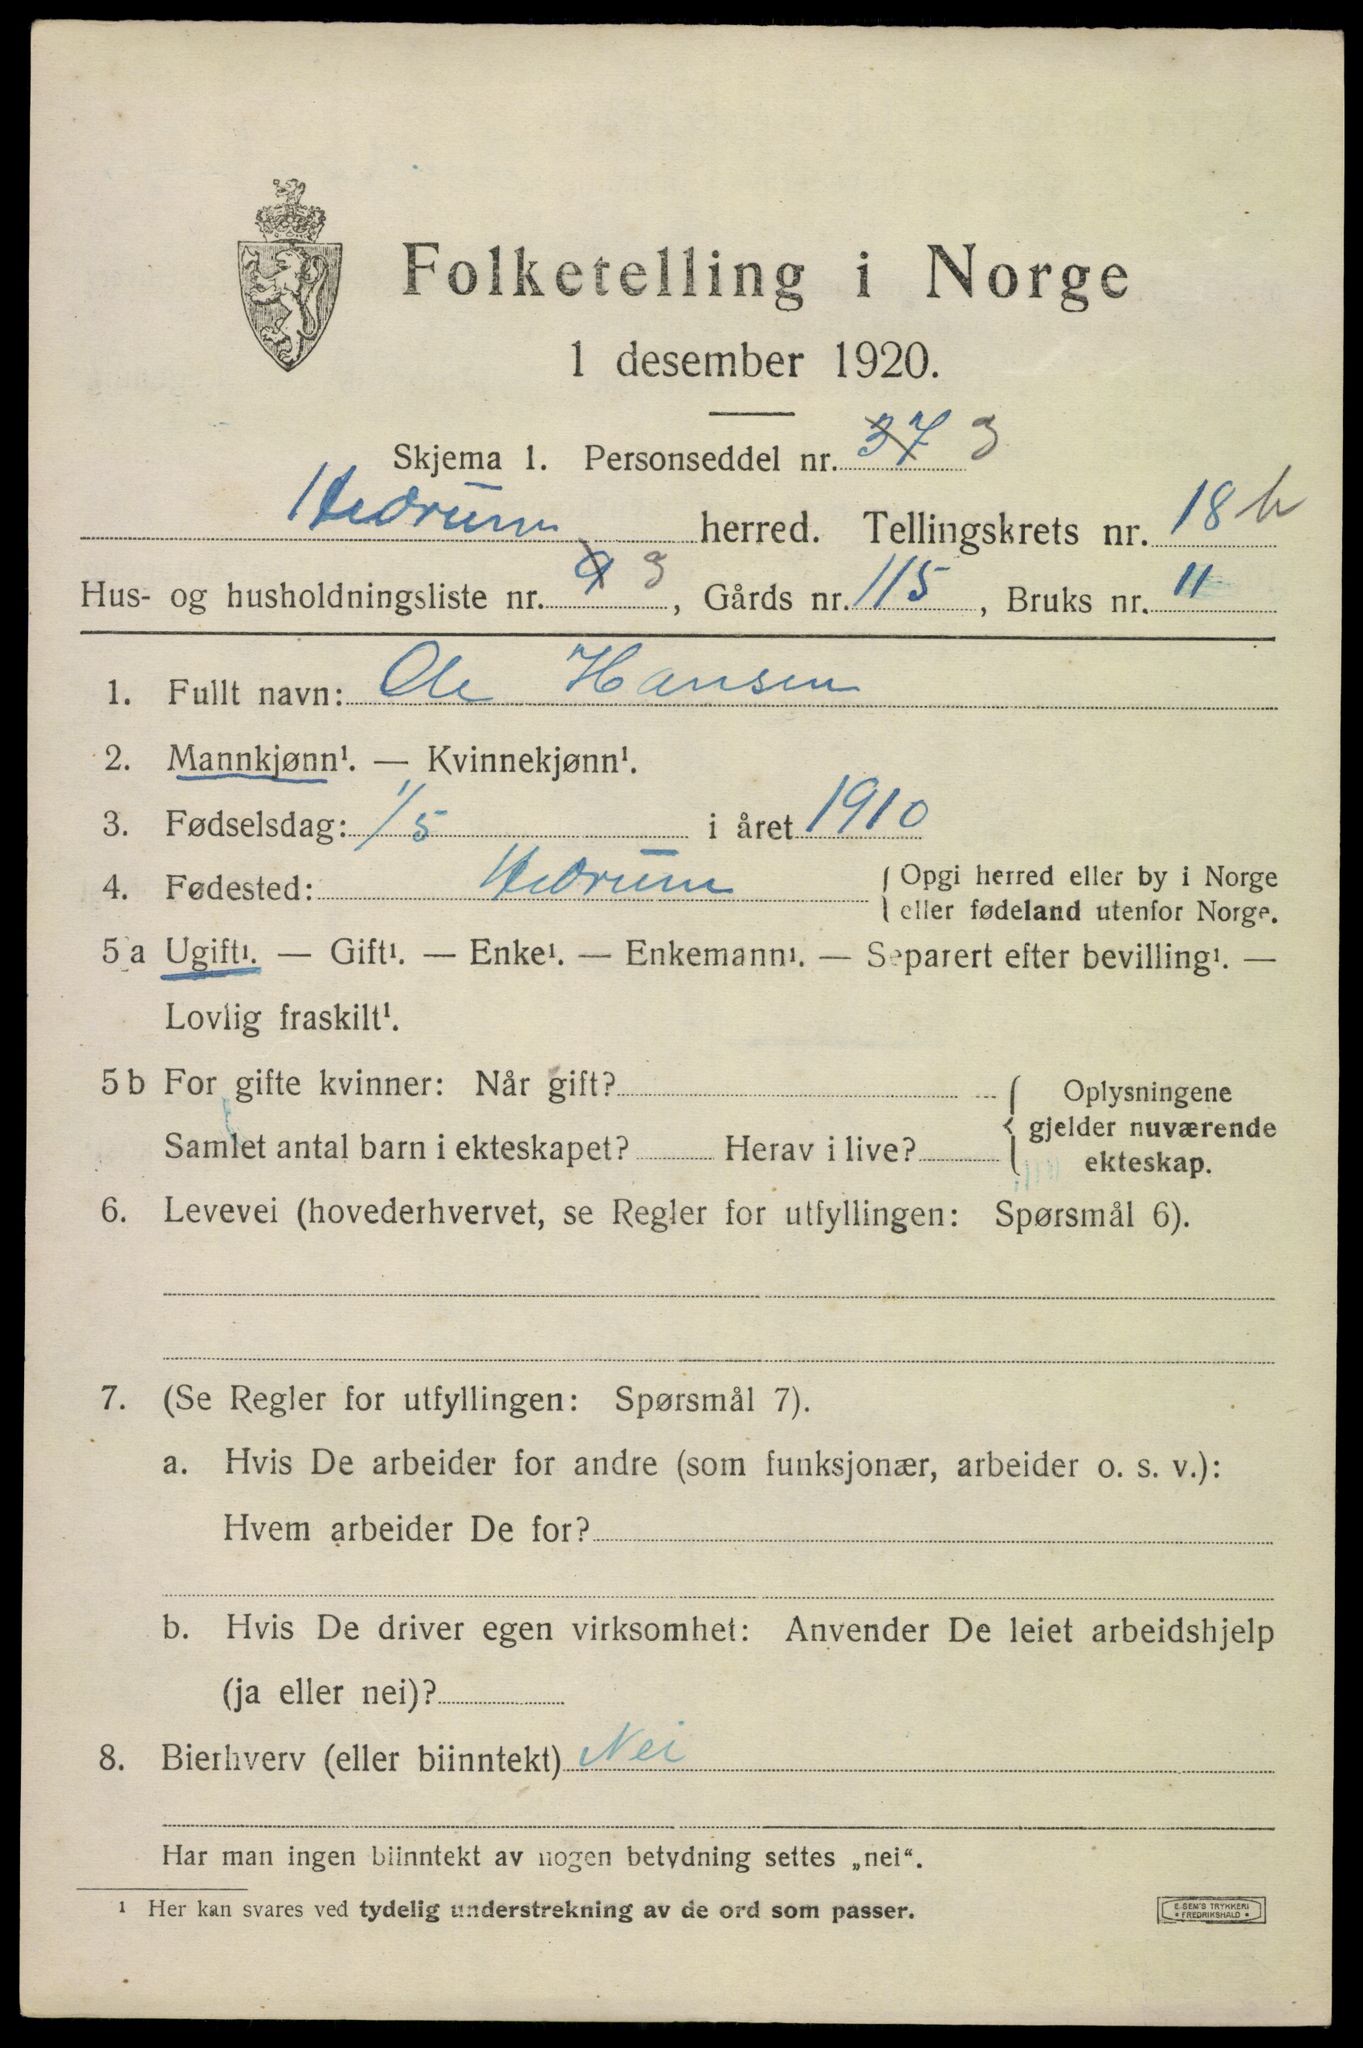 Folketelling i Norge
1 desember 1920.
Skjema 1. Personseddel nr. 37 3
Hedrum herred. Tellingskrets nr. 18 b
Hus- og husholdningsliste nr. 9 3, Gårds nr. 115, Bruks nr. 11
1. Fullt navn: Ole Hansen
2. Mannkjønn¹. — Kvinnekjønn¹.
3. Fødselsdag: 1/5 i året 1910
4. Fødested: Hedrum { Opgi herred eller by i Norge
eller fødeland utenfor Norge.
5 a Ugift¹. — Gift¹. — Enke¹. — Enkemann¹. — Separert efter bevilling¹. —
Lovlig fraskilt¹.
5 b For gifte kvinner: Når gift? { Oplysningene
gjelder nuværende
Samlet antal barn i ekteskapet? Herav i live? ekteskap.
6. Levevei (hovederhvervet, se Regler for utfyllingen: Spørsmål 6).
7. (Se Regler for utfyllingen: Spørsmål 7).
a. Hvis De arbeider for andre (som funksjonær, arbeider o. s. v.):
Hvem arbeider De for?
b. Hvis De driver egen virksomhet: Anvender De leiet arbeidshjelp
(ja eller nei)?
8. Bierhverv (eller biinntekt) Nei
Har man ingen biinntekt av nogen betydning settes „nei“.
¹ Her kan svares ved tydelig understrekning av de ord som passer.
E. SEM'S TRYKKERI
• FREDRIKSHALD •